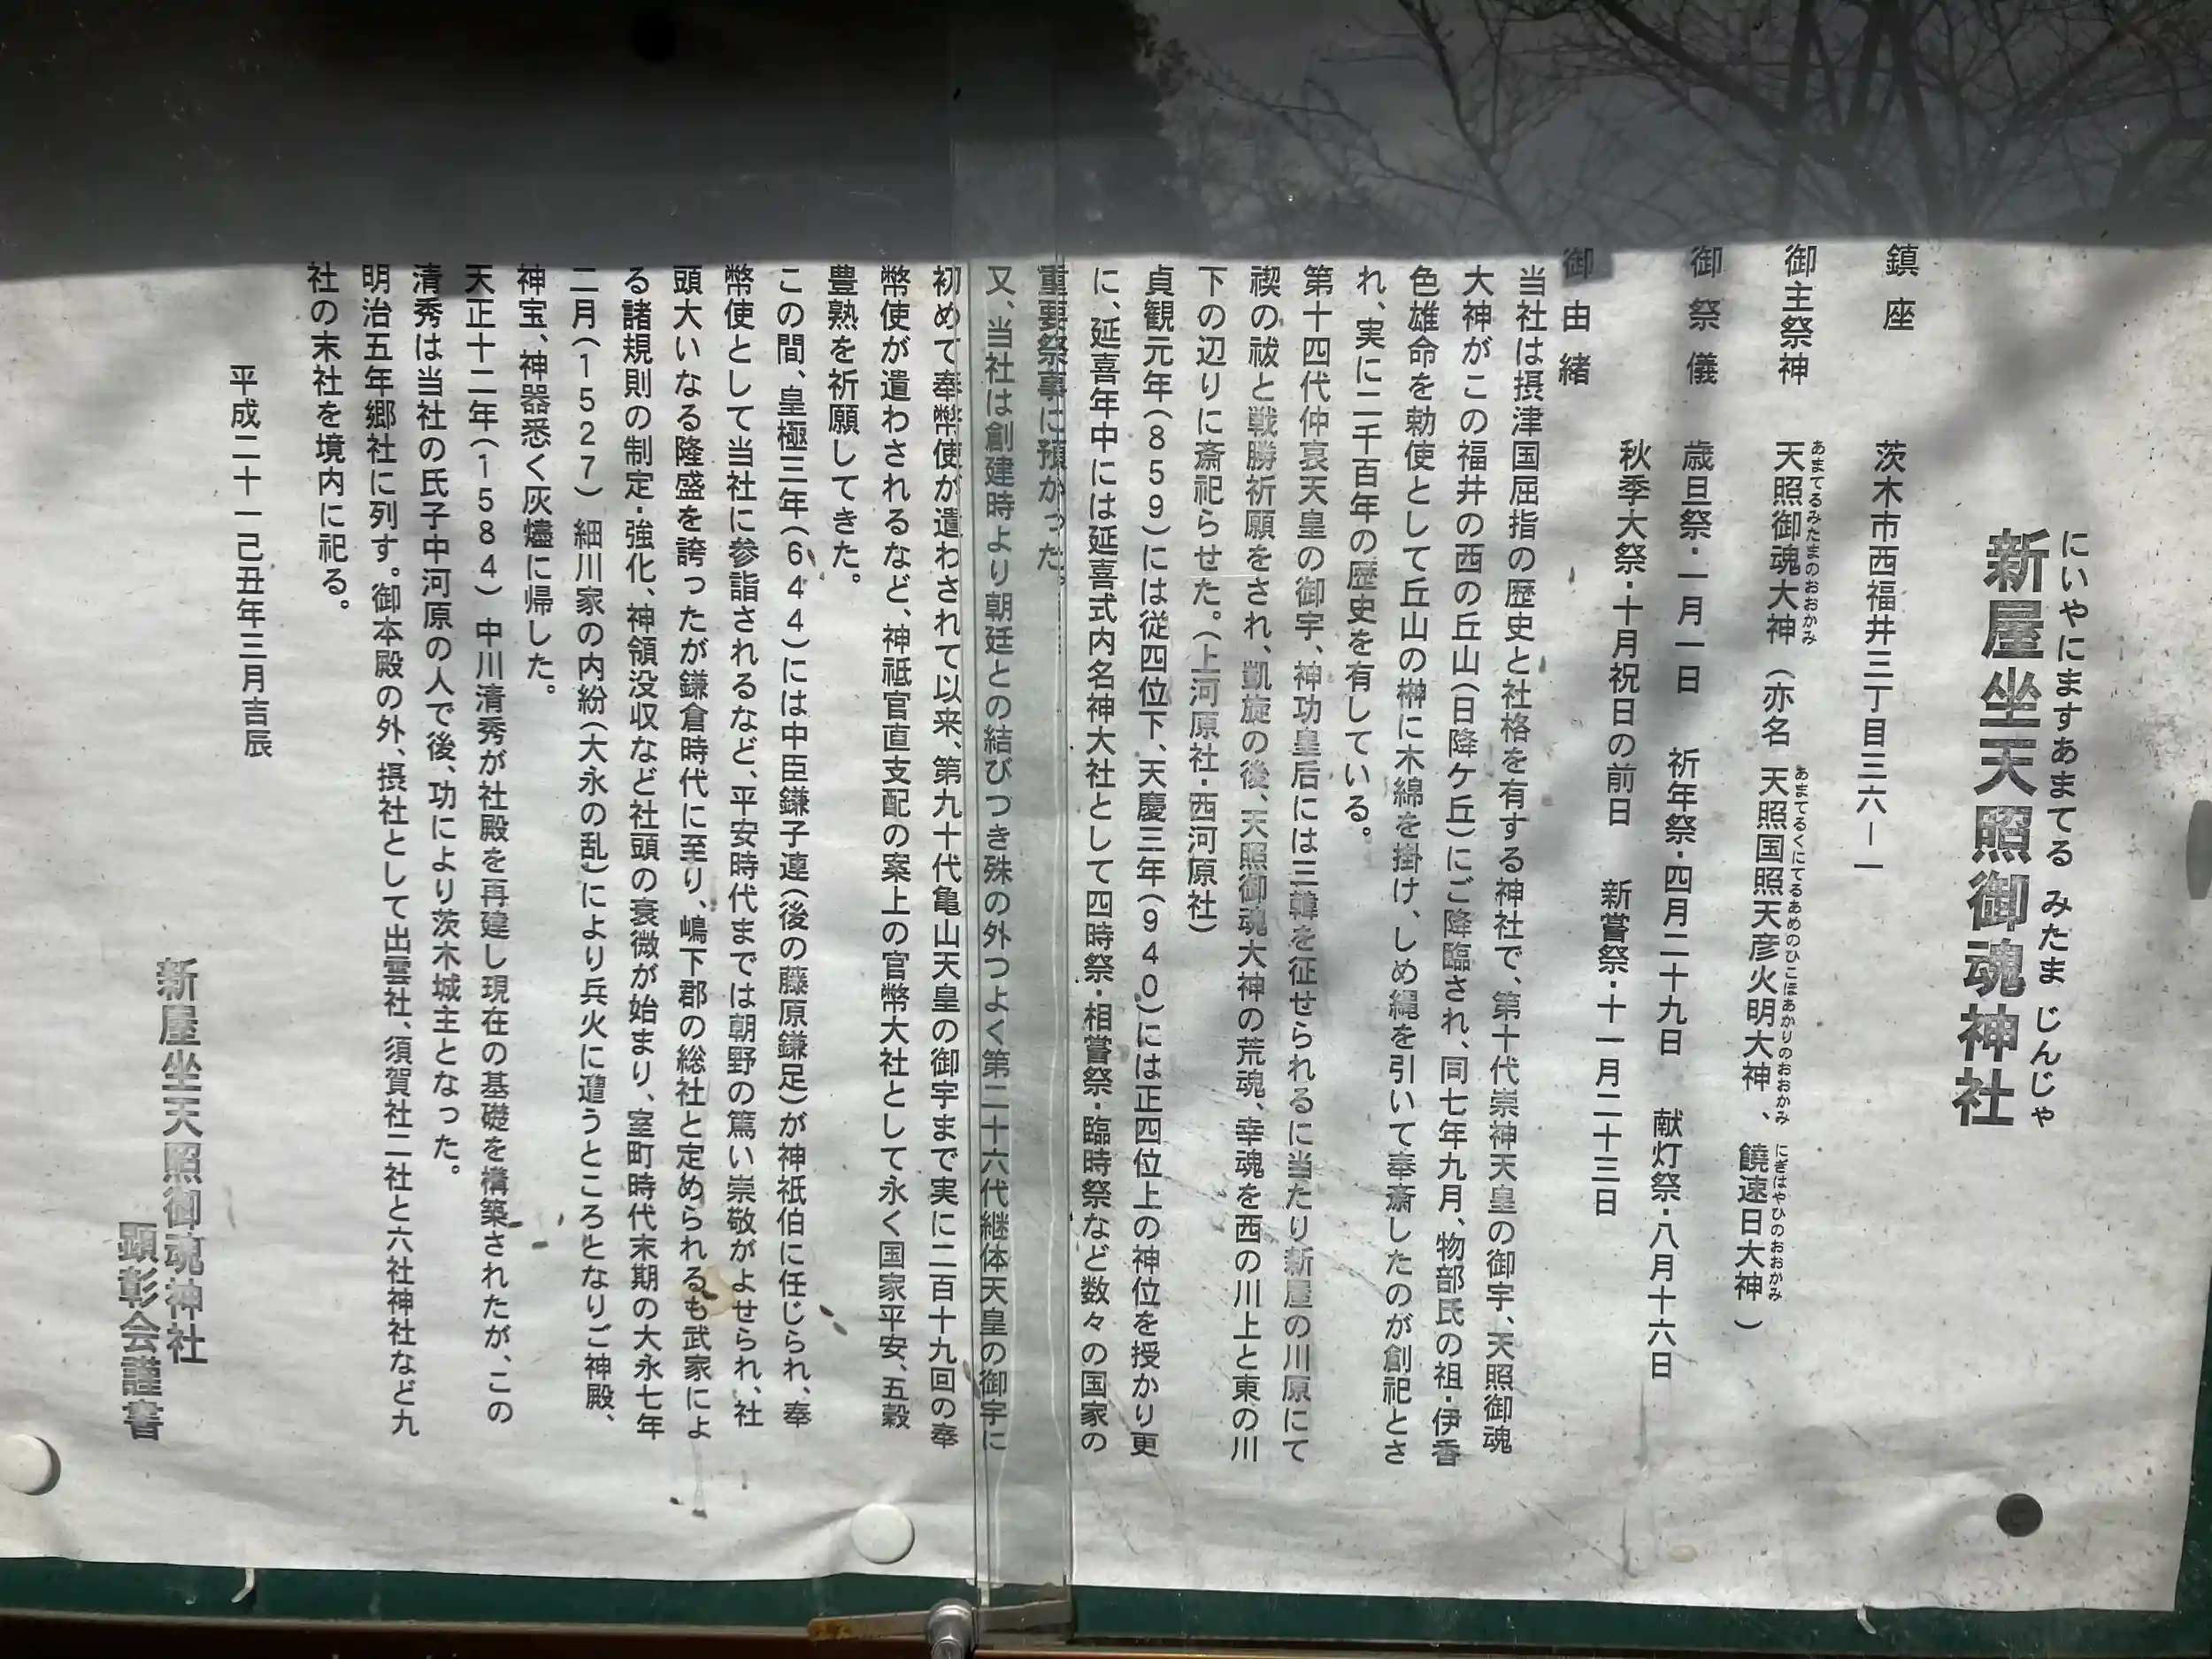 にいやにますあまてる みたま じんじゃ
新屋坐天照御魂神社
鎮座　茨木市西福井三丁目三六―一
あまてるみたまのおおかみ　あまてるくにてるあめのひこほあかりのおおかみ　にぎはやひのおおかみ
御主祭神　天照御魂大神（亦名 天照国照天彦火明大神、饒速日大神）
御祭儀　歳旦祭・一月一日　祈年祭・四月二十九日　献灯祭・八月十六日
秋季大祭・十月祝日の前日　新嘗祭・十一月二十三日
御由緒
当社は摂津国屈指の歴史と社格を有する神社で、第十代崇神天皇の御宇、天照御魂
大神がこの福井の西の丘山（日降ケ丘）にご降臨され、同七年九月、物部氏の祖・伊香
色雄命を勅使として丘山の榊に木綿を掛け、しめ縄を引いて奉斎したのが創祀とさ
れ、実に二千百年の歴史を有している。
第十四代仲哀天皇の御宇、神功皇后には三韓を征せられるに当たり新屋の川原にて
禊の祓と戦勝祈願をされ、凱旋の後、天照御魂大神の荒魂、幸魂を西の川上と東の川
下の辺りに斎祀らせた。（上河原社・西河原社）
貞観元年（859）には従四位下、天慶三年（940）には正四位上の神位を授かり更
に、延喜年中には延喜式内名神大社として四時祭・相嘗祭・臨時祭など数々の国家の
重要祭事に預かった。
又、当社は創建時より朝廷との結びつき殊の外つよく第二十六代継体天皇の御宇に
初めて奉幣使が遣わされて以来、第九十代亀山天皇の御宇まで実に二百十九回の奉
幣使が遣わされるなど、神祗官直支配の案上の官幣大社として永く国家平安、五穀
豊熟を祈願してきた。
この間、皇極三年（644）には中臣鎌子連（後の藤原鎌足）が神祇伯に任じられ、奉
幣使として当社に参詣されるなど、平安時代までは朝野の篤い崇敬がよせられ、社
頭大いなる隆盛を誇ったが鎌倉時代に至り、嶋下郡の総社と定められるも武家によ
る諸規則の制定・強化、神領没収など社頭の衰微が始まり、室町時代末期の大永七年
二月（1527）細川家の内紛（大永の乱）により兵火に遭うところとなりご神殿、
神宝、神器悉く灰燼に帰した。
天正十二年（1584）中川清秀が社殿を再建し現在の基礎を構築されたが、この
清秀は当社の氏子中河原の人で後、功により茨木城主となった。
明治五年郷社に列す。御本殿の外、摂社として出雲社、須賀社二社と六社神社など九
社の末社を境内に祀る。
平成二十一己丑年三月吉辰
新屋坐天照御魂神社
顕彰会謹書